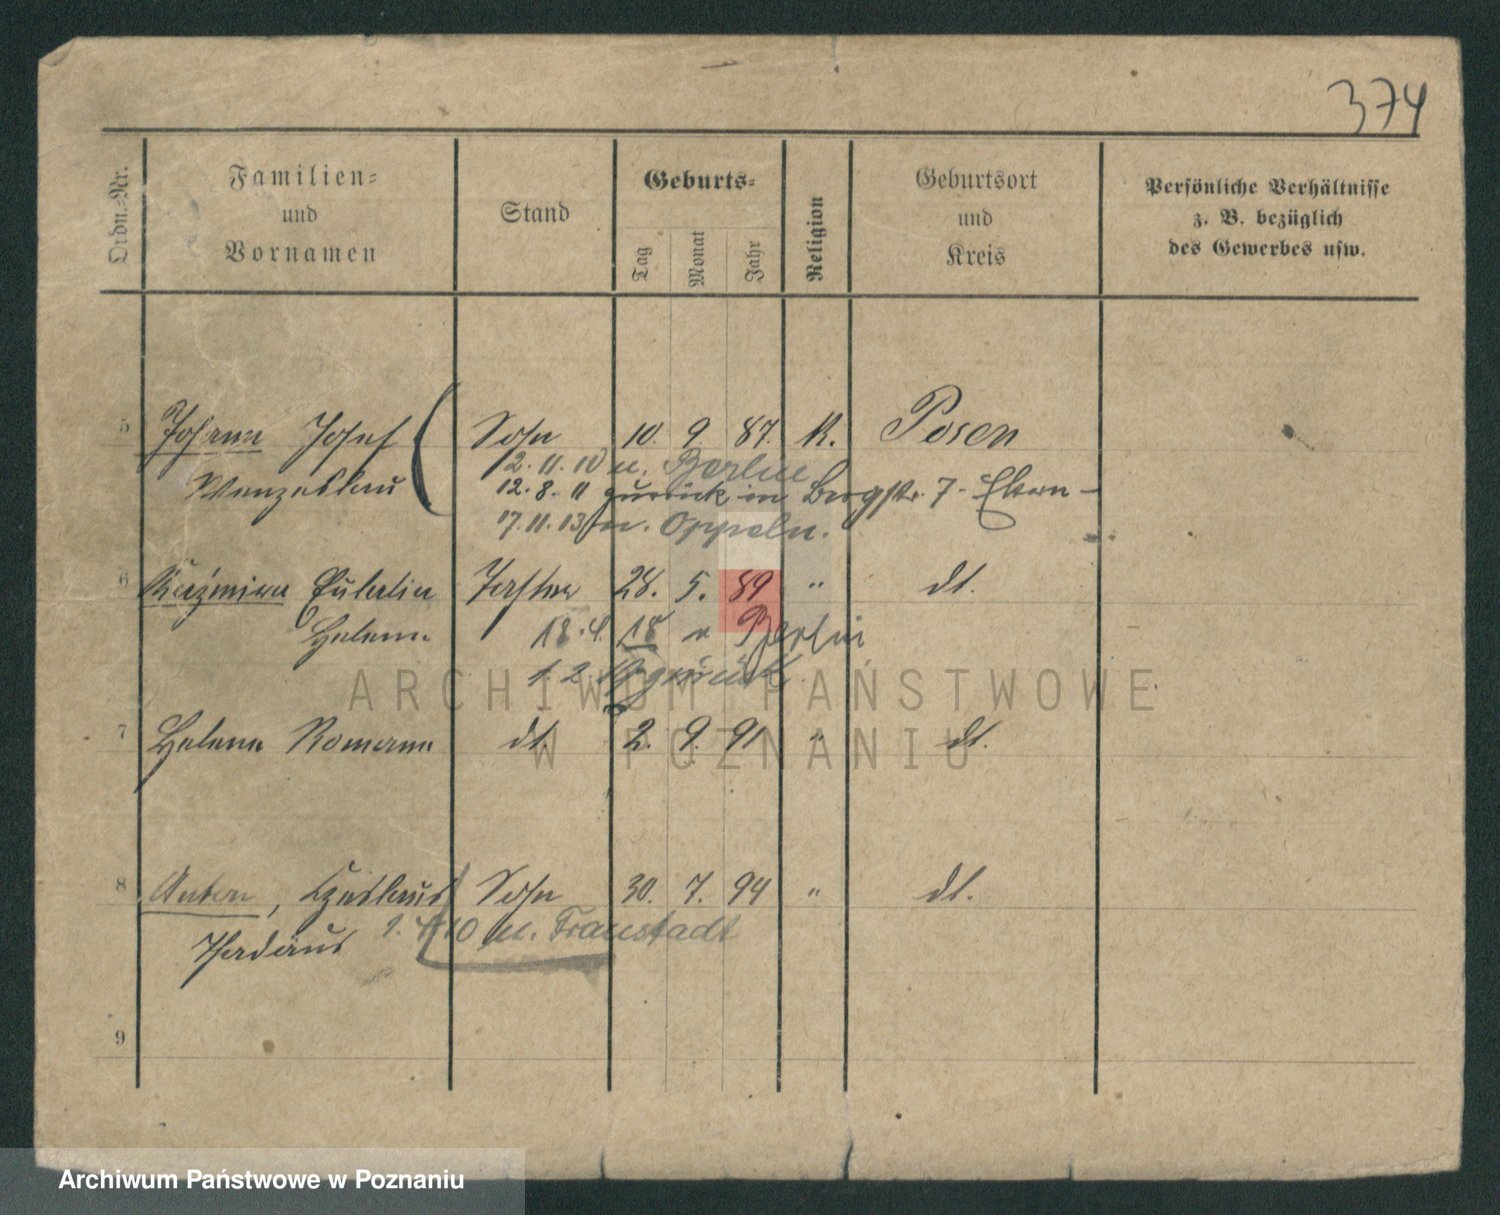 374
Ordn.-Nr.
Familien-
und
Vornamen
Stand
Geburts-
Tag
Monat
Jahr
Religion
Geburtsort
und
Kreis
Persönliche Verhältnisse
z. B. bezüglich
des Gewerbes usw.
5 Johann Josef Sohn 10. 9. 87. K. Posen
2. 11. 10 n. Berlin
Wenzeslaus 12. 8. 11 zurück in Bergstr. 7 -
17. 11. 13 n. Oppeln.
6 Kazimira Eulalia Tochter 28. 5. 89 " dt.
Helena 18. 4. 18 n Berlin
1. 2. zurück
7 Helena Romana dt. 2. 9. 91 " dt.
ARCHIWUM PAŃSTWOWE
W POZNANIU
8 Anton, Czeslaus Sohn 30. 7. 94 " dt.
Thadäus 1. 4 10 n. Fraustadt
9
Archiwum Państwowe w Poznaniu